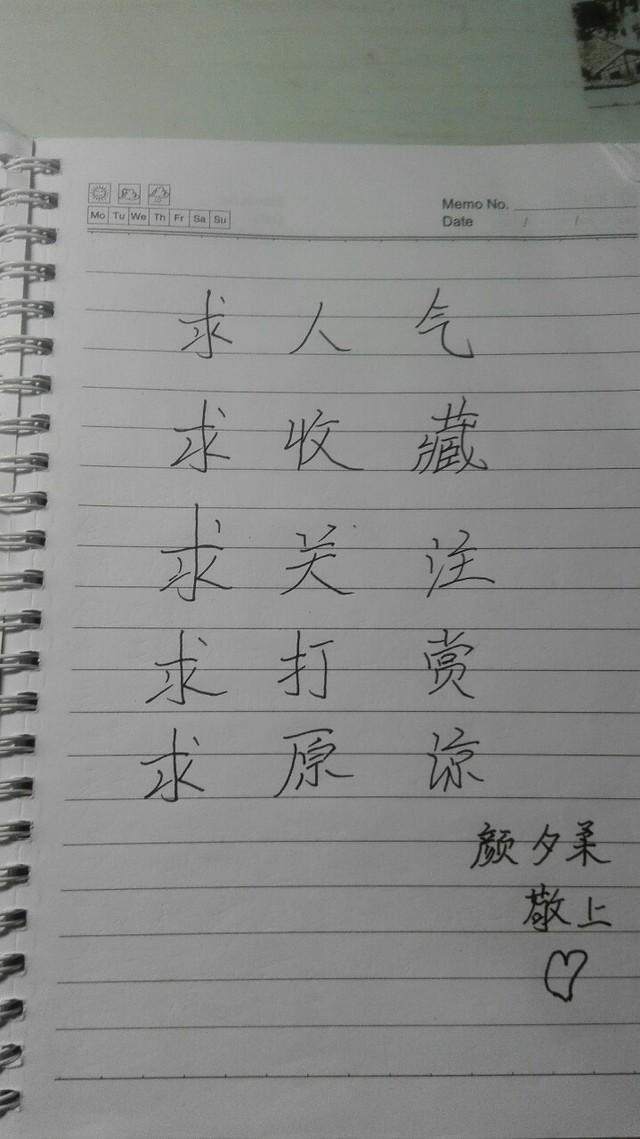 Memo No.
Mo Tu We Th Fr Sa Su
Date / /
求人气
求收藏
求关注
求打赏
求原谅
颜夕柔
敬上